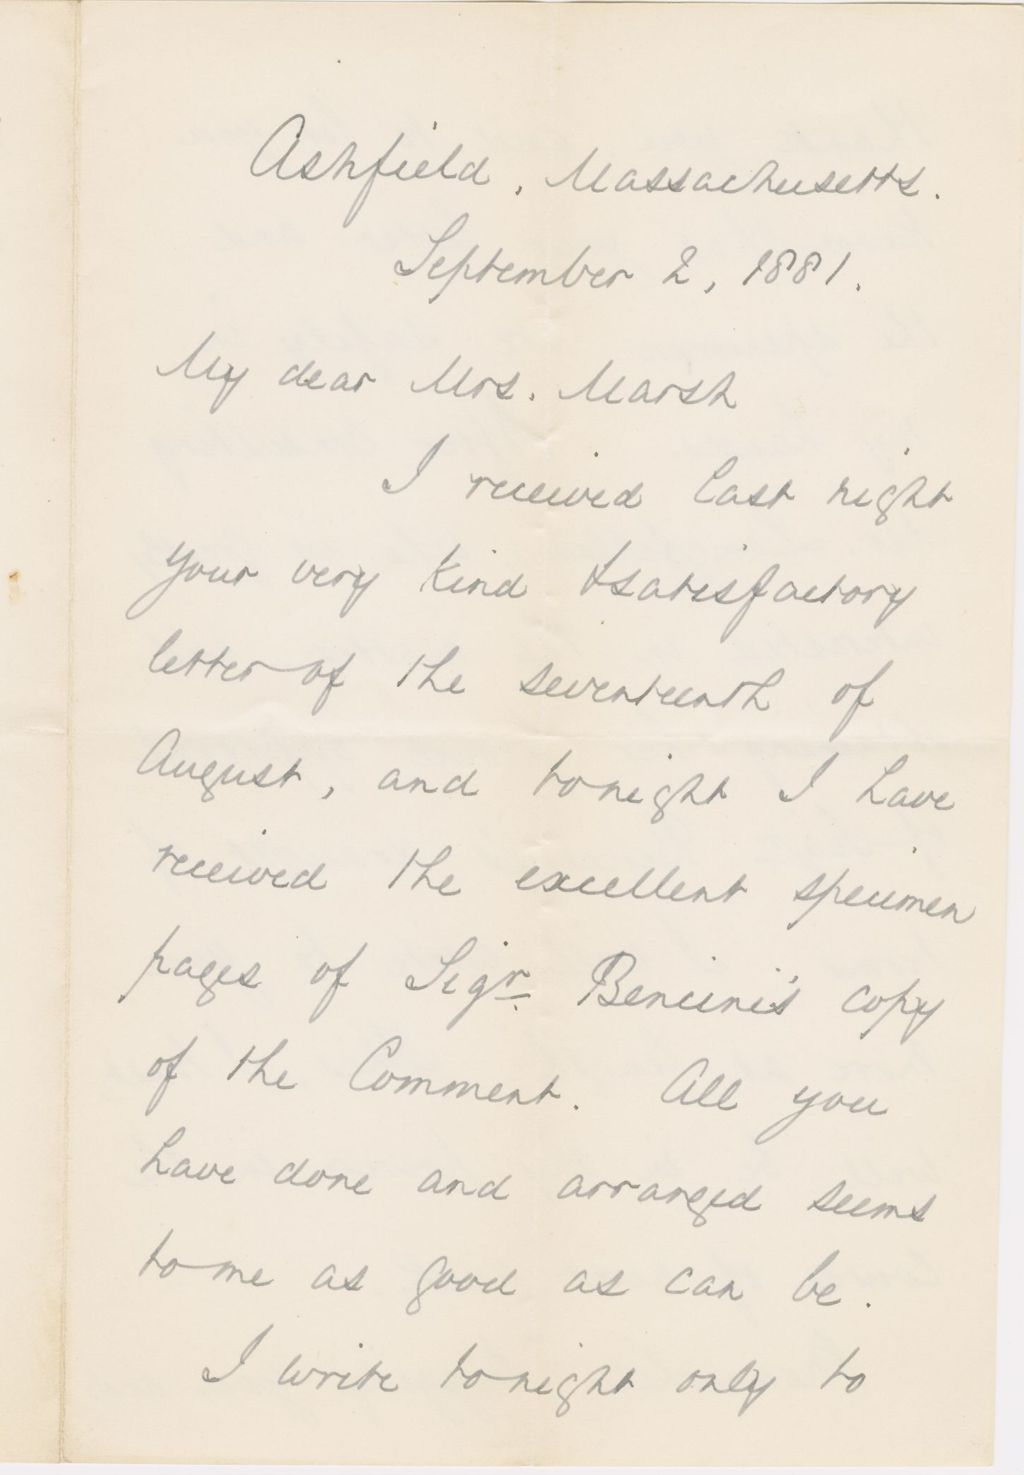 Ashfield, Massachusetts.
September 2, 1881.
My dear Mrs. Marsh
I received last night
your very kind & satisfactory
letter of the seventeenth of
August, and tonight I have
received the excellent specimen
pages of Sigr. Bencini's copy
of the Comment. All you
have done and arranged seems
to me as good as can be.
I write tonight only to